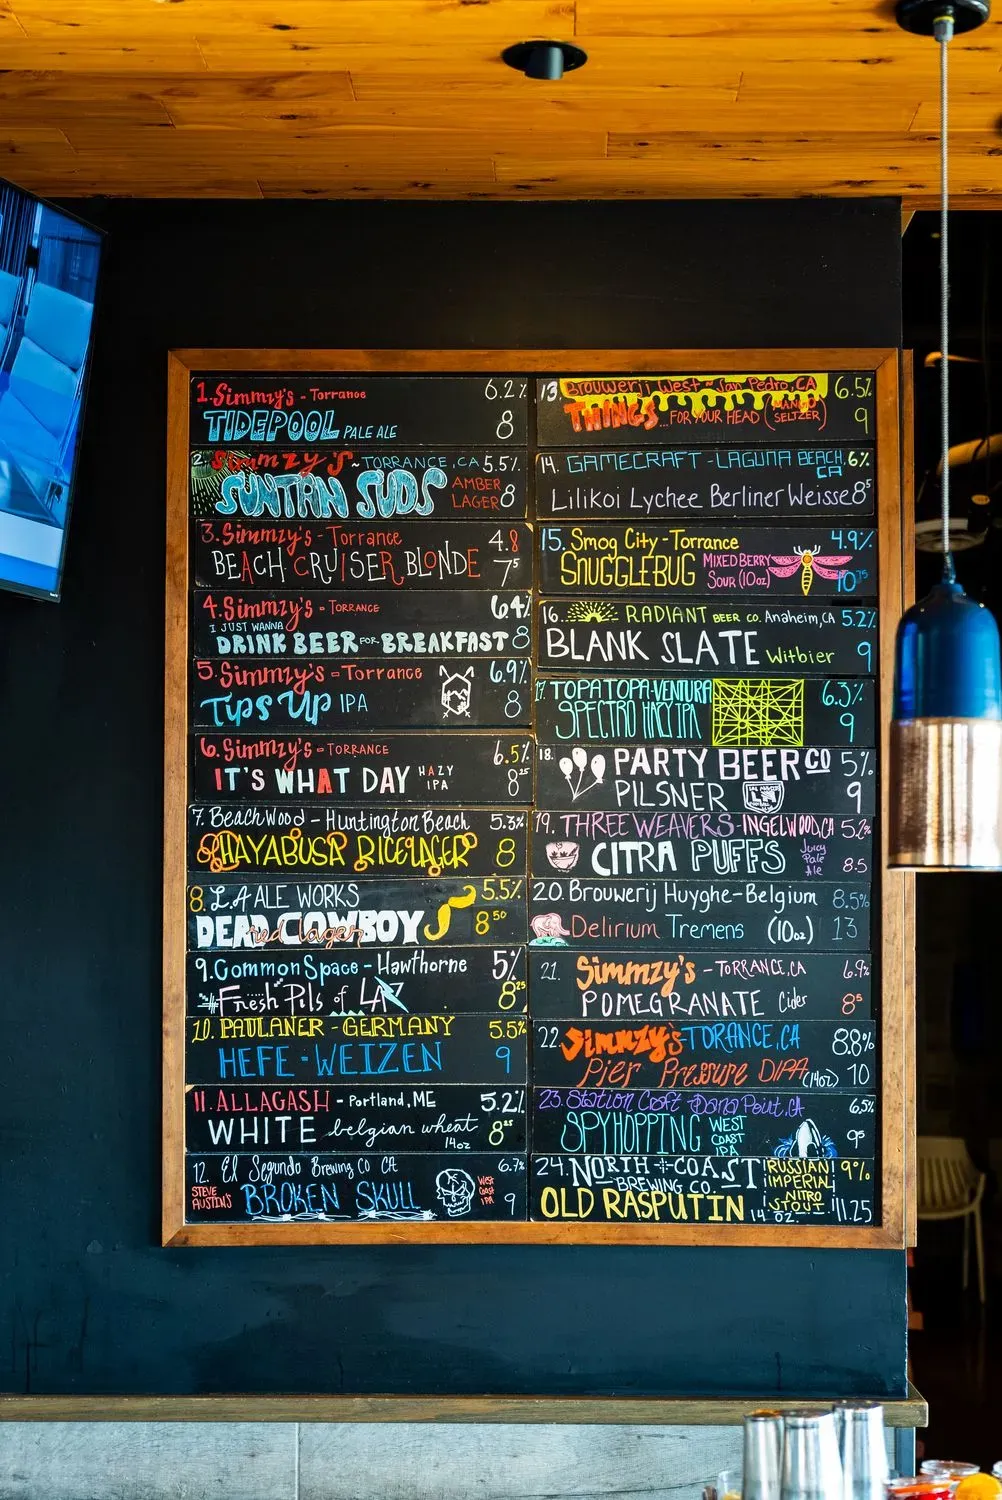 1. Simmzy's - Torrance 6.2%
TIDEPOOL PALE ALE 8
2. Simmzy's ~ TORRANCE, CA 5.5%
SUNTAN SUDS AMBER LAGER 8
3. Simmzy's - Torrance 4.8
BEACH CRUISER BLONDE 7⁵
4. Simmzy's - TORRANCE 6.4%
I JUST WANNA
DRINK BEER FOR BREAKFAST 8
5. Simmzy's - Torrance 6.9%
TIPS UP IPA 8
6. Simmzy's - TORRANCE 6.5%
IT'S WHAT DAY HAZY IPA 8²⁵
7. BeachWood - Huntington Beach 5.3%
HAYABUSA RICE LAGER 8
8. L.A ALE WORKS 5.5%
DEAD COWBOY red lager 8⁵⁰
9. Common Space - Hawthorne 5%
#Fresh Pils of LAZ 8²⁵
10. PAULANER - GERMANY 5.5%
HEFE-WEIZEN 9
11. ALLAGASH - Portland, ME 5.2%
WHITE belgian wheat 8²⁵
14oz
12. El Segundo Brewing Co CA 6.7%
STEVE AUSTIN'S BROKEN SKULL West Coast IPA 9
13. Brouwerij West ~ San Pedro, CA 6.5%
THINGS...FOR YOUR HEAD (MANGO SELTZER) 9
14. GAMECRAFT - LAGUNA BEACH, CA 6%
Lilikoi Lychee Berliner Weisse 8⁵
15. Smog City - Torrance 4.9%
SNUGGLEBUG MIXED BERRY SOUR (10oz) 10⁷⁵
16. RADIANT BEER CO. Anaheim, CA 5.2%
BLANK SLATE Witbier 9
17. TOPA TOPA - VENTURA 6.3%
SPECTRO HAZY IPA 9
18. PARTY BEER CO 5%
PILSNER 9
19. THREE WEAVERS - INGELWOOD, CA 5.2%
CITRA PUFFS Juicy Pale Ale 8.5
20. Brouwerij Huyghe - Belgium 8.5%
Delirium Tremens (10oz) 13
21. Simmzy's - TORRANCE, CA 6.9%
POMEGRANATE Cider 8⁵
22. Simmzy's - TORANCE, CA 8.8%
Pier Pressure DIPA (14oz) 10
23. Station Craft - Dana Point, CA 6.5%
SPYHOPPING WEST COAST IPA 9⁵
24. NORTH COAST RUSSIAN 9%
BREWING CO. IMPERIAL
OLD RASPUTIN 14 OZ. NITRO STOUT 11.25